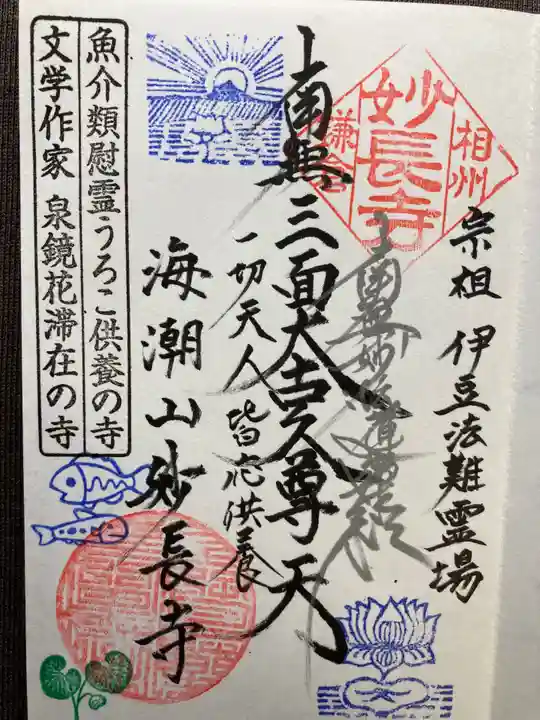 相州
妙長寺
鎌倉
宗祖 伊豆法難霊場
南無三面大黒尊天
一切天人皆応供養
海潮山妙長寺
魚介類慰霊うろこ供養の寺
文学作家 泉鏡花滞在の寺